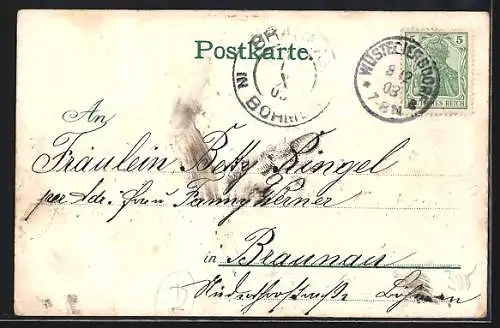 Postkarte.
BRAUNAU
IN BÖHMEN
WÜSTEGIERSDORF
8 12
03
7-8 N.
5
DEUTSCHES REICH
An
Fräulein Betty Ringel
per Adr. Frau Fanny Werner
in Braunau
Niederthorstraße Böhmen